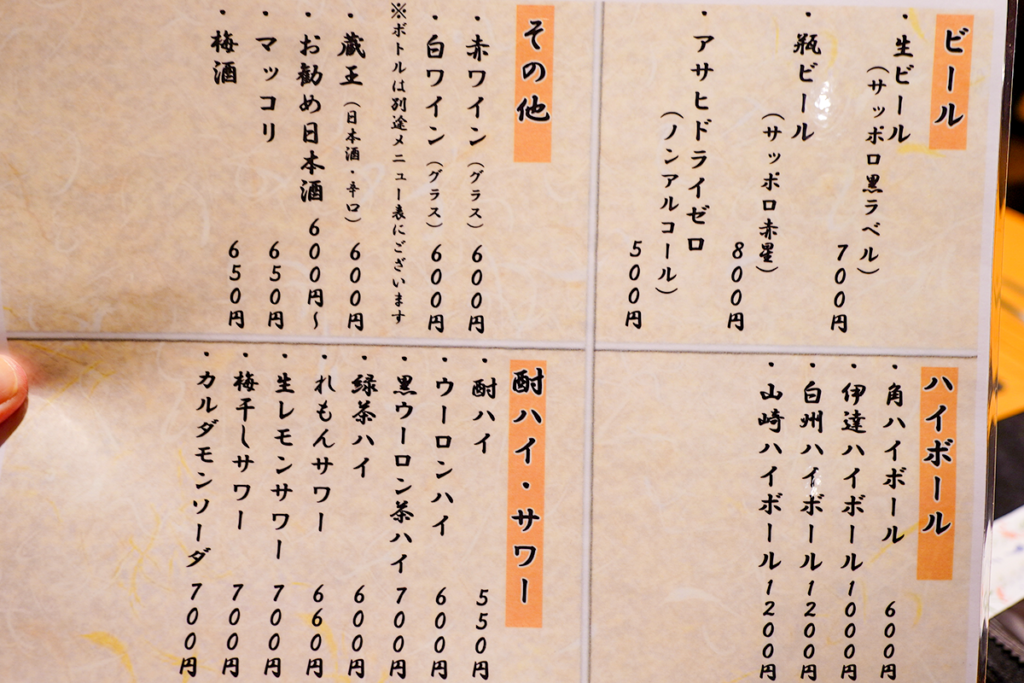 ビール
・生ビール
（サッポロ黒ラベル）
700円
・瓶ビール
（サッポロ赤星）
800円
・アサヒドライゼロ
（ノンアルコール）
500円
その他
・赤ワイン（グラス）600円
・白ワイン（グラス）600円
※ボトルは別途メニュー表にございます
・蔵王（日本酒・辛口）600円
・お勧め日本酒 600円～
・マッコリ 650円
・梅酒 650円
ハイボール
・角ハイボール 600円
・伊達ハイボール1000円
・白州ハイボール1200円
・山崎ハイボール1200円
酎ハイ・サワー
・酎ハイ 550円
・ウーロンハイ 600円
・黒ウーロン茶ハイ 700円
・緑茶ハイ 600円
・れもんサワー 660円
・生レモンサワー 700円
・梅干しサワー 700円
・カルダモンソーダ 700円